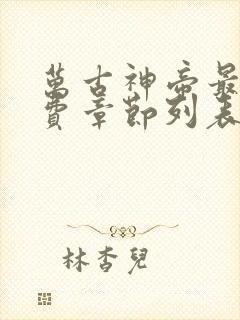 萬古神帝最
費章節列表
林杏兒